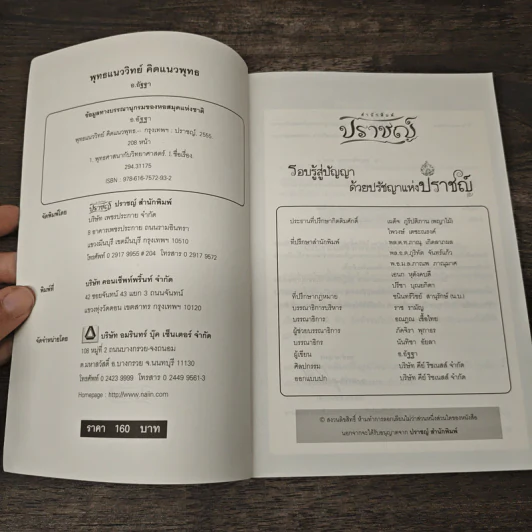 พุทธแนววิทย์ คิดแนวพุทธ
อ.อัฐฐา
ข้อมูลทางบรรณานุกรมของหอสมุดแห่งชาติ
อ.อัฐฐา
พุทธแนววิทย์ คิดแนวพุทธ.-- กรุงเทพฯ : ปราชญ์, 2555.
208 หน้า
1. พุทธศาสนากับวิทยาศาสตร์. I. ชื่อเรื่อง.
294.31175
ISBN : 978-616-7572-93-2
จัดพิมพ์โดย
ปราชญ์ ปราชญ์ สำนักพิมพ์
บริษัท เพชรประกาย จำกัด
8 อาคารเพชรประกาย ถนนรามอินทรา
แขวงมีนบุรี เขตมีนบุรี กรุงเทพฯ 10510
โทรศัพท์ 0 2917 9955 # 204 โทรสาร 0 2917 9572
พิมพ์ที่
บริษัท คอนเซ็พท์พริ้นท์ จำกัด
42 ซอยจันทน์ 43 แยก 3 ถนนจันทน์
แขวงทุ่งวัดดอน เขตสาทร กรุงเทพฯ 10120
จัดจำหน่ายโดย
บริษัท อมรินทร์ บุ๊ค เซ็นเตอร์ จำกัด
108 หมู่ที่ 2 ถนนบางกรวย-จงถนอม
ต.มหาสวัสดิ์ อ.บางกรวย จ.นนทบุรี 11130
โทรศัพท์ 0 2423 9999 โทรสาร 0 2449 9561-3
Homepage : http://www.naiin.com
ราคา 160 บาท
สำนักพิมพ์
ปราชญ์
รอบรู้สู่ปัญญา
ด้วยปรัชญาแห่งปราชญ์
ประธานที่ปรึกษากิตติมศักดิ์
ที่ปรึกษาสำนักพิมพ์
ที่ปรึกษากฎหมาย
บรรณาธิการบริหาร ราช รามัญ
บรรณาธิการ
ผู้ช่วยบรรณาธิการ
บรรณาธิกร
ผู้เขียน อ.อัฐฐา
ศิลปกรรม บริษัท คีย์ รีซเนสส์ จำกัด
ออกแบบปก บริษัท คีย์ รีซเนสส์ จำกัด
© สงวนลิขสิทธิ์ ห้ามทำการลอกเลียนไม่ว่าส่วนหนึ่งส่วนใดของหนังสือ
นอกจากจะได้รับอนุญาตจาก ปราชญ์ สำนักพิมพ์